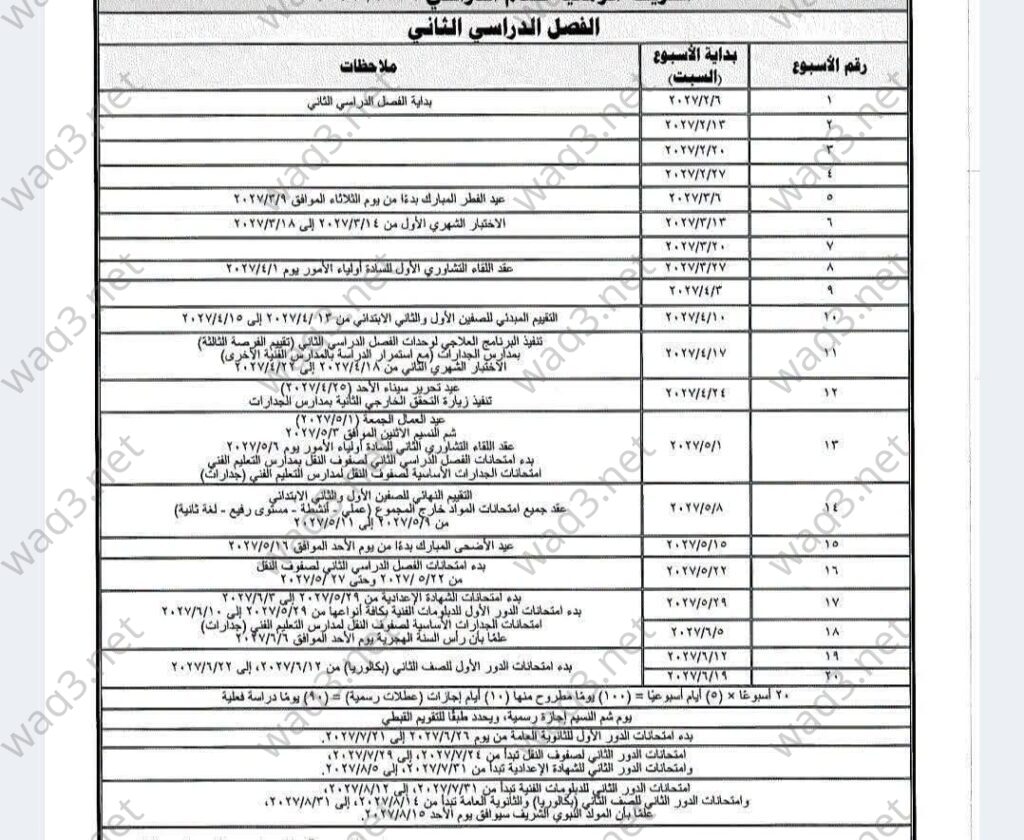 الفصل الدراسي الثاني
رقم الأسبوع
بداية الأسبوع
(السبت)
ملاحظات
١ ٢٠٢٧/٢/٦ بداية الفصل الدراسي الثاني
٢ ٢٠٢٧/٢/١٣
٣ ٢٠٢٧/٢/٢٠
٤ ٢٠٢٧/٢/٢٧
٥ ٢٠٢٧/٣/٦ عيد الفطر المبارك بدءًا من يوم الثلاثاء الموافق ٢٠٢٧/٣/٩
٦ ٢٠٢٧/٣/١٣ الاختبار الشهري الأول من ٢٠٢٧/٣/١٤ إلى ٢٠٢٧/٣/١٨
٧ ٢٠٢٧/٣/٢٠
٨ ٢٠٢٧/٣/٢٧ عقد اللقاء التشاوري الأول للسادة أولياء الأمور يوم ٢٠٢٧/٤/١
٩ ٢٠٢٧/٤/٣
١٠ ٢٠٢٧/٤/١٠ التقييم المبدئي للصفين الأول والثاني الابتدائي من ١٣ /٢٠٢٧/٤ إلى ٢٠٢٧/٤/١٥
١١ ٢٠٢٧/٤/١٧ تنفيذ البرنامج العلاجي لوحدات الفصل الدراسي الثاني (تقييم الفرصة الثالثة)
بمدارس الجدارات (مع استمرار الدراسة بالمدارس الفنية الأخرى)
الاختبار الشهري الثاني من ٢٠٢٧/٤/١٨ إلى ٢٠٢٧/٤/٢٢
١٢ ٢٠٢٧/٤/٢٤ عيد تحرير سيناء الأحد (٢٠٢٧/٤/٢٥)
تنفيذ زيارة التحقق الخارجي الثانية بمدارس الجدارات
١٣ ٢٠٢٧/٥/١ عيد العمال الجمعة (٢٠٢٧/٥/١)
شم النسيم الاثنين الموافق ٢٠٢٧/٥/٣
عقد اللقاء التشاوري الثاني للسادة أولياء الأمور يوم ٢٠٢٧/٥/٦
بدء امتحانات الفصل الدراسي الثاني لصفوف النقل بمدارس التعليم الفني
امتحانات الجدارات الأساسية لصفوف النقل لمدارس التعليم الفني (جدارات)
١٤ ٢٠٢٧/٥/٨ التقييم النهائي للصفين الأول والثاني الابتدائي
عقد جميع امتحانات المواد خارج المجموع (عملي - أنشطة - مستوى رفيع - لغة ثانية)
من ٢٠٢٧/٥/٩ إلى ٢٠٢٧/٥/١١
١٥ ٢٠٢٧/٥/١٥ عيد الأضحى المبارك بدءًا من يوم الأحد الموافق ٢٠٢٧/٥/١٦
١٦ ٢٠٢٧/٥/٢٢ بدء امتحانات الفصل الدراسي الثاني لصفوف النقل
من ٢٠٢٧/ ٥/٢٢ وحتى ٢٧ /٢٠٢٧/٥
١٧ ٢٠٢٧/٥/٢٩ بدء امتحانات الشهادة الإعدادية من ٢٠٢٧/٥/٢٩ إلى ٢٠٢٧/٦/٣
بدء امتحانات الدور الأول للدبلومات الفنية بكافة أنواعها من ٢٠٢٧/٥/٢٩ إلى ٢٠٢٧/٦/١٠
امتحانات الجدارات الأساسية لصفوف النقل لمدارس التعليم الفني (جدارات)
١٨ ٢٠٢٧/٦/٥ علمًا بأن رأس السنة الهجرية يوم الأحد الموافق ٢٠٢٧/٦/٦
١٩ ٢٠٢٧/٦/١٢ بدء امتحانات الدور الأول للصف الثاني (بكالوريا) من ٢٠٢٧/٦/١٢، إلى ٢٠٢٧/٦/٢٢
٢٠ ٢٠٢٧/٦/١٩
٢٠ أسبوعًا × (٥) أيام أسبوعيًا = (١٠٠) يومًا مطروح منها (١٠) أيام إجازات (عطلات رسمية) = (٩٠) يومًا دراسة فعلية
يوم شم النسيم إجازة رسمية، ويحدد طبقًا للتقويم القبطي
بدء امتحانات الدور الأول للثانوية العامة من يوم ٢٠٢٧/٦/٢٦ إلى ٢٠٢٧/٧/٢١.
امتحانات الدور الثاني لصفوف النقل تبدأ من ٢٠٢٧/٧/٢٤، إلى ٢٠٢٧/٧/٢٩.
وامتحانات الدور الثاني للشهادة الإعدادية تبدأ من ٢٠٢٧/٧/٣١، إلى ٢٠٢٧/٨/٥.
امتحانات الدور الثاني للدبلومات الفنية تبدأ من ٢٠٢٧/٧/٣١، إلى ٢٠٢٧/٨/١٢.
وامتحانات الدور الثاني للصف الثاني (بكالوريا) والثانوية العامة تبدأ من ٢٠٢٧/٨/١٤، إلى ٢٠٢٧/٨/٣١،
علمًا بأن المولد النبوي الشريف سيوافق يوم الأحد ٢٠٢٧/٨/١٥.
waq3.net